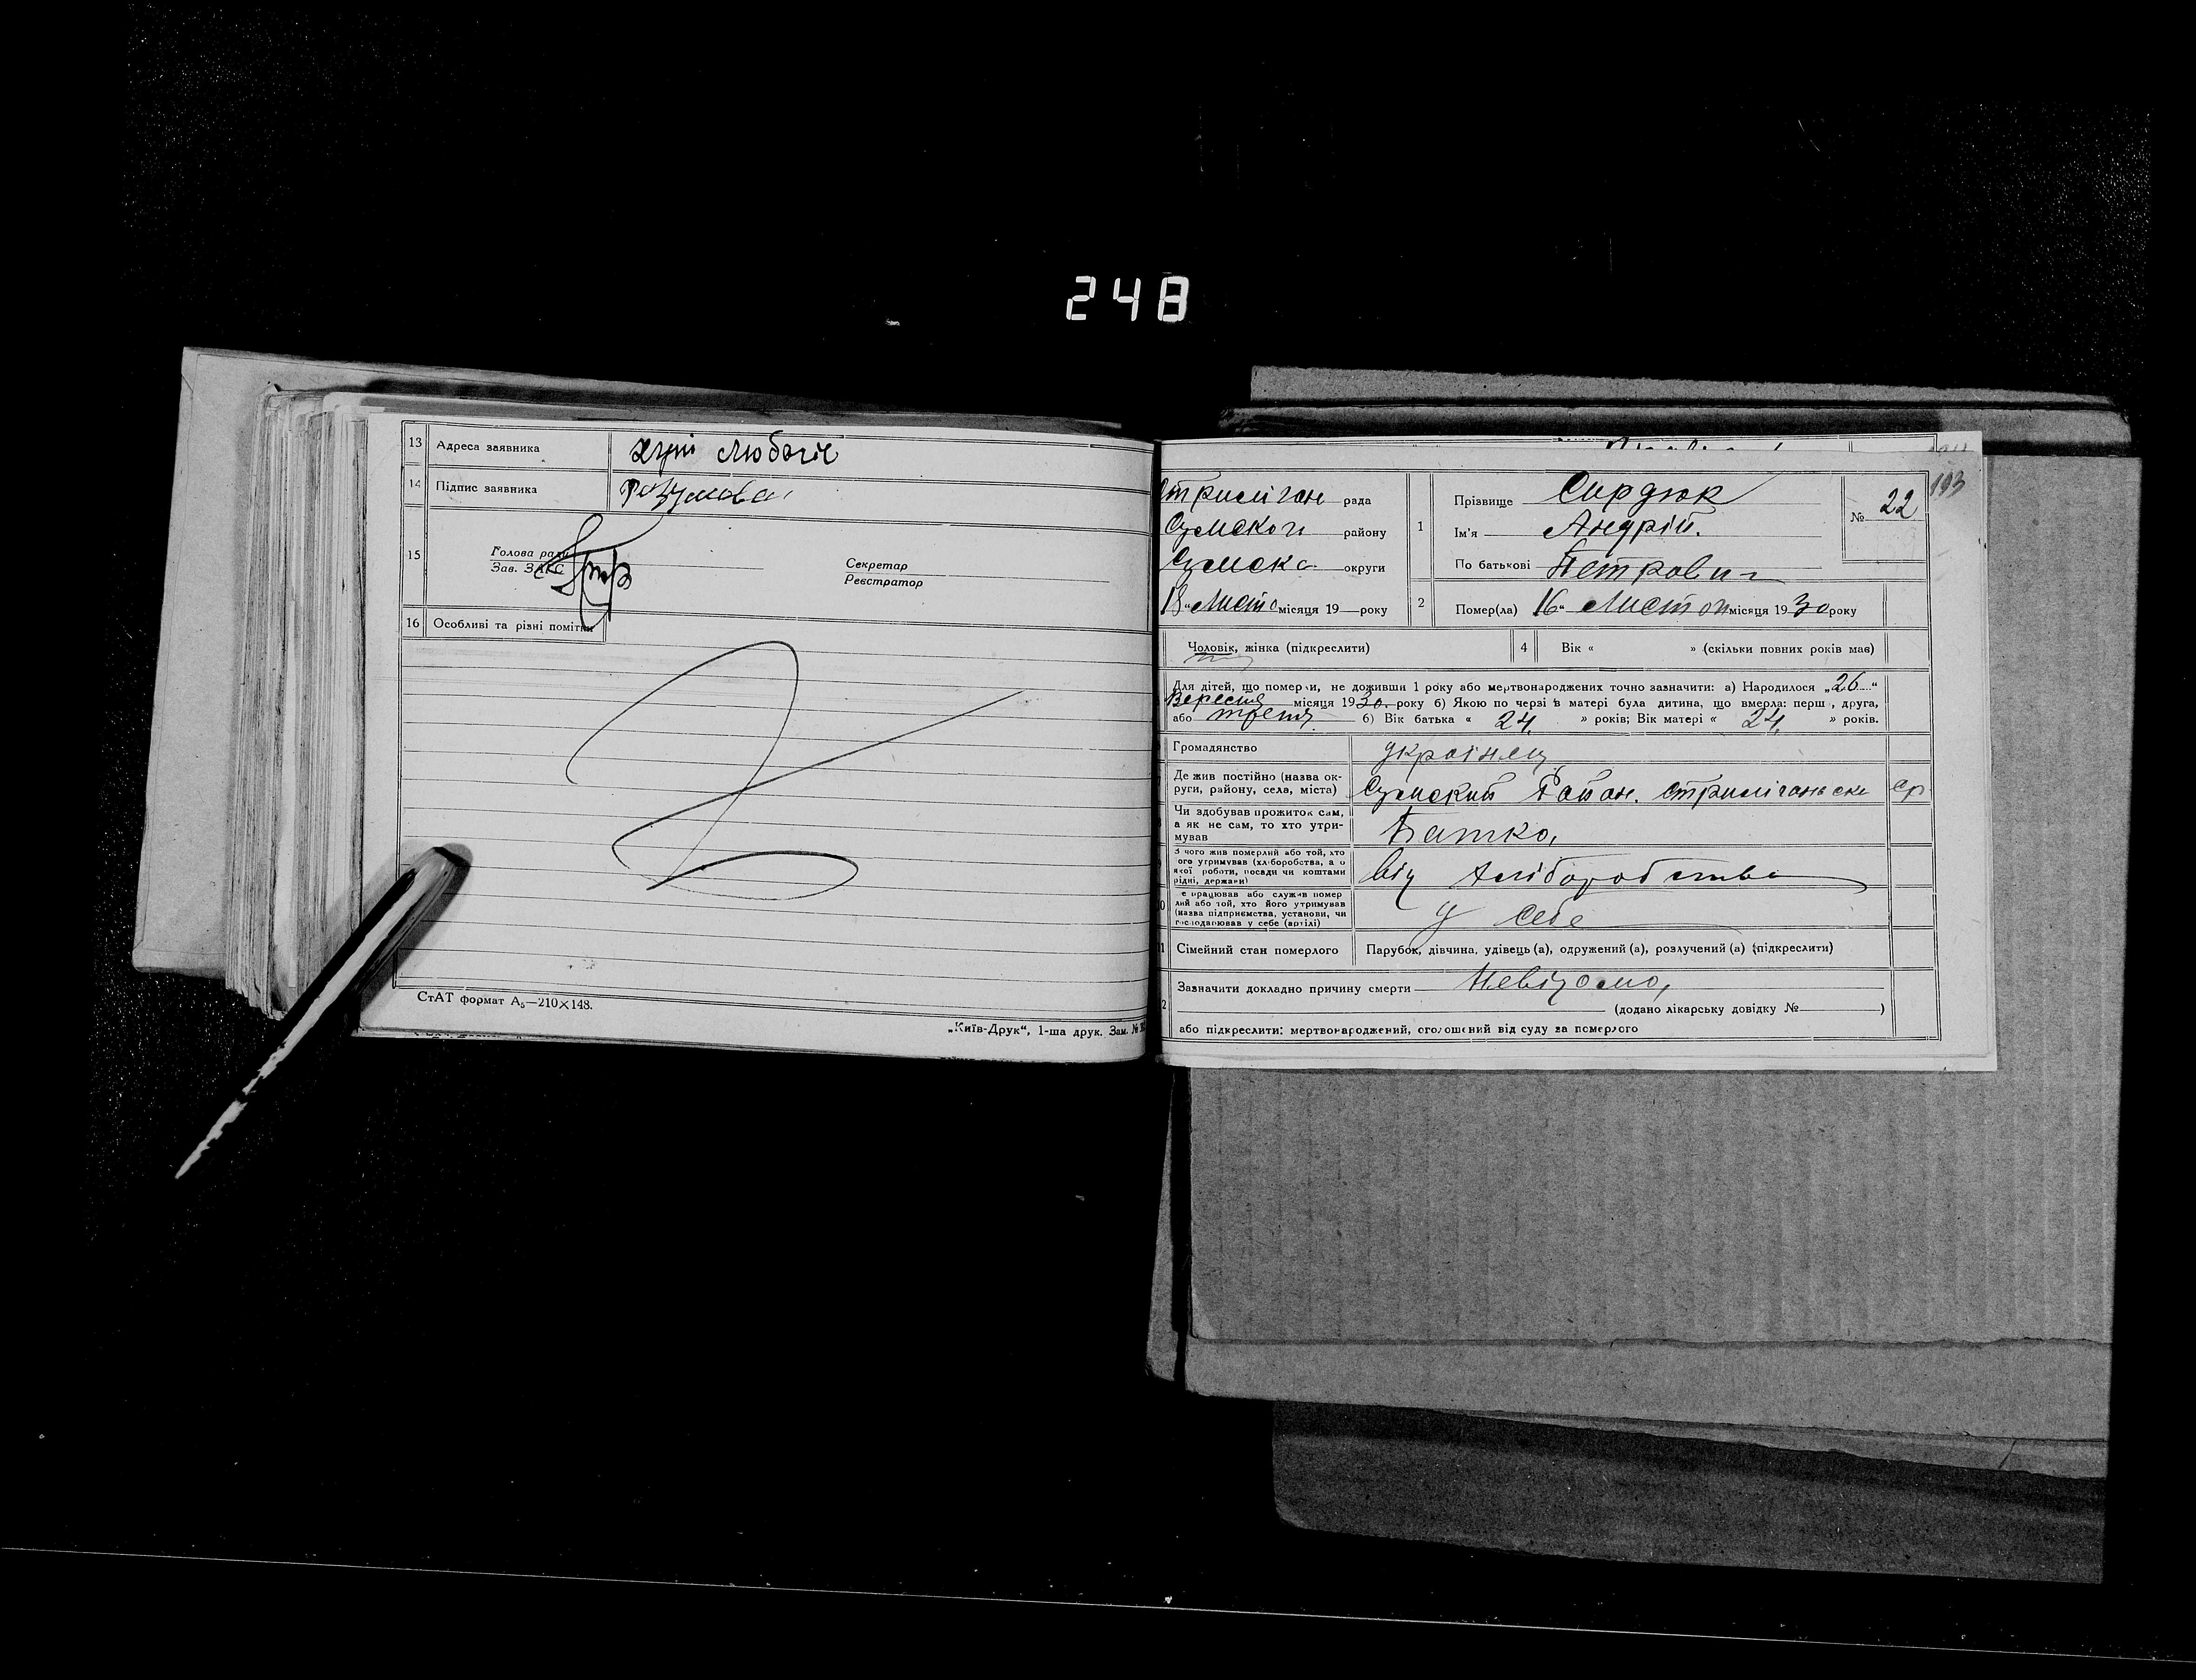 248
13 Адреса заявника
14 Підпис заявника
15 Голова ради
Зав. ЗАГС
Секретар
Реєстратор
16 Особливі та різні помітки
СтАТ формат А₅—210×148.
„Київ-Друк“, 1-ша друк. Зам. №
193
рада
району
округи
18 „ Листо місяця 19 року
1 Прізвище Сирдюк
Ім'я Андрій.
По батькові Петрович
№ 22
2 Помер(ла) 16 „ Листоп місяця 1930 року
Чоловік, жінка (підкреслити)
4 Вік « » (скільки повних років має)
Для дітей, що померли, не доживши 1 року або мертвонароджених точно зазначити: а) Народилося „26“
Вересня місяця 1930. року б) Якою по черзі в матері була дитина, що вмерла: перш, друга,
або третя б) Вік батька « 24 » років; Вік матері « 24 » років.
Громадянство українец
Де жив постійно (назва ок-
руги, району, села, міста) Сумский Район.
Чи здобував прожиток сам,
а як не сам, то хто утри-
мував Батко,
З чого жив померлий або той, хто
ого утримував (хліборобства, а о
якої роботи, посади чи коштами
рідні, держави) Від Хліборобства
е працював або служив помер
лий або той, хто його утримував
(назва підприємства, установи, чи
господарював у себе (артілі) У себе
Сімейний стан померлого Парубок, дівчина, удівець (а), одружений (а), розлучений (а) (підкреслити)
Зазначити докладно причину смерти Невідомо,
(додано лікарську довідку № )
або підкреслити: мертвонароджений, оголошений від суду за померлого